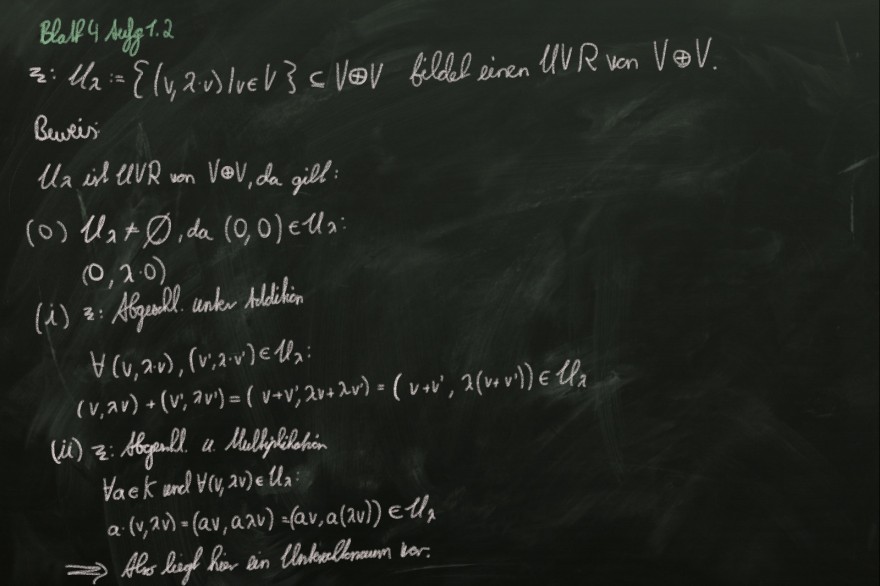 Blatt 4 Aufg 1.2
z: U_λ := {(v, λ·v) | v ∈ V} ⊆ V⊕V bildet einen UVR von V⊕V.
Beweis:
U_λ ist UVR von V⊕V, da gilt:
(0) U_λ ≠ ∅, da (0,0) ∈ U_λ:
(0, λ·0)
(i) z: Abgeschl. unter Addition
∀ (v, λ·v), (v', λ·v') ∈ U_λ:
(v, λv) + (v', λv') = (v+v', λv+λv') = (v+v', λ(v+v')) ∈ U_λ
(ii) z: Abgeschl. u. Multiplikation
∀a∈K und ∀(v, λv) ∈ U_λ:
a·(v, λv) = (av, aλv) = (av, a(λv)) ∈ U_λ
⇒ Also liegt hier ein Untervektorraum vor.